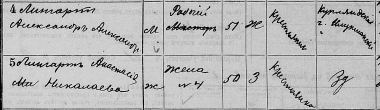 4 Лингартъ Александръ Александр М Рабочій Мастеръ 51 Ж Крестьянинъ Курляндской г.
5 Лингартъ Анастасія Николаева Ж жена №4 50 З Крестьянка